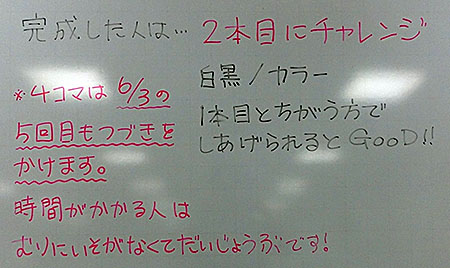 完成した人は… 2本目にチャレンジ
白黒/カラー
1本目とちがう方で
しあげられるとGooD!!
※4コマは6/3の
5回目もつづきを
かけます。
時間がかかる人は
むりにいそがなくてだいじょうぶです!